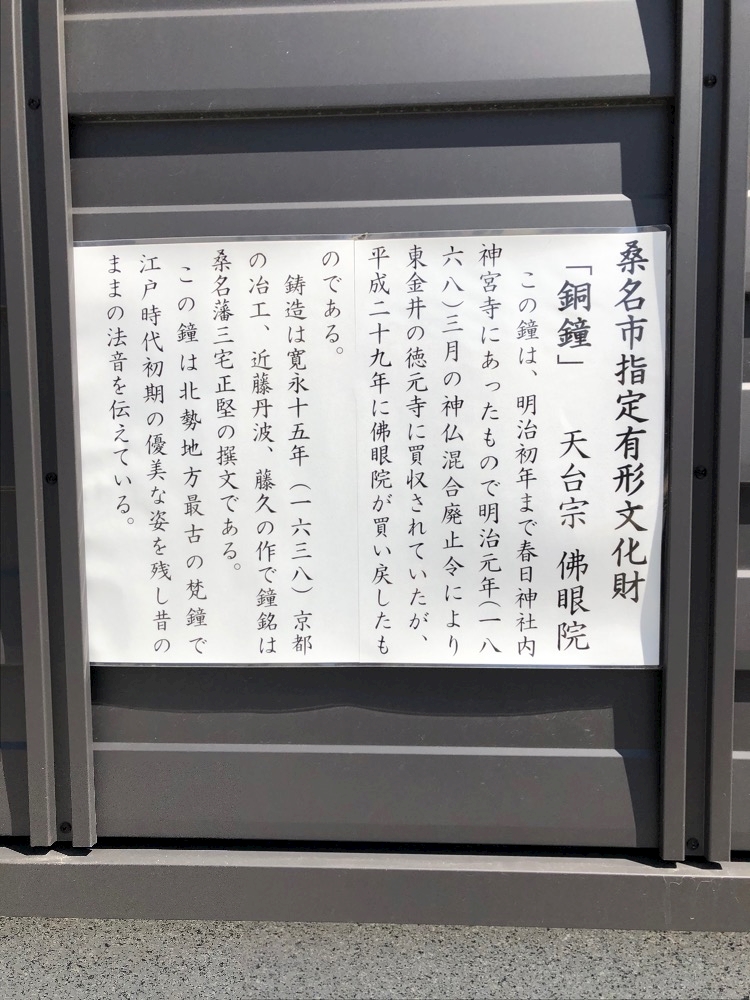 桑名市指定有形文化財
「銅鐘」　天台宗　佛眼院
この鐘は、明治初年まで春日神社内
神宮寺にあったもので明治元年（一八
六八）三月の神仏混合廃止令により
東金井の徳元寺に買収されていたが、
平成二十九年に佛眼院が買い戻したも
のである。
鋳造は寛永十五年（一六三八）京都
の冶工、近藤丹波、藤久の作で鐘銘は
桑名藩三宅正堅の撰文である。
この鐘は北勢地方最古の梵鐘で
江戸時代初期の優美な姿を残し昔の
ままの法音を伝えている。